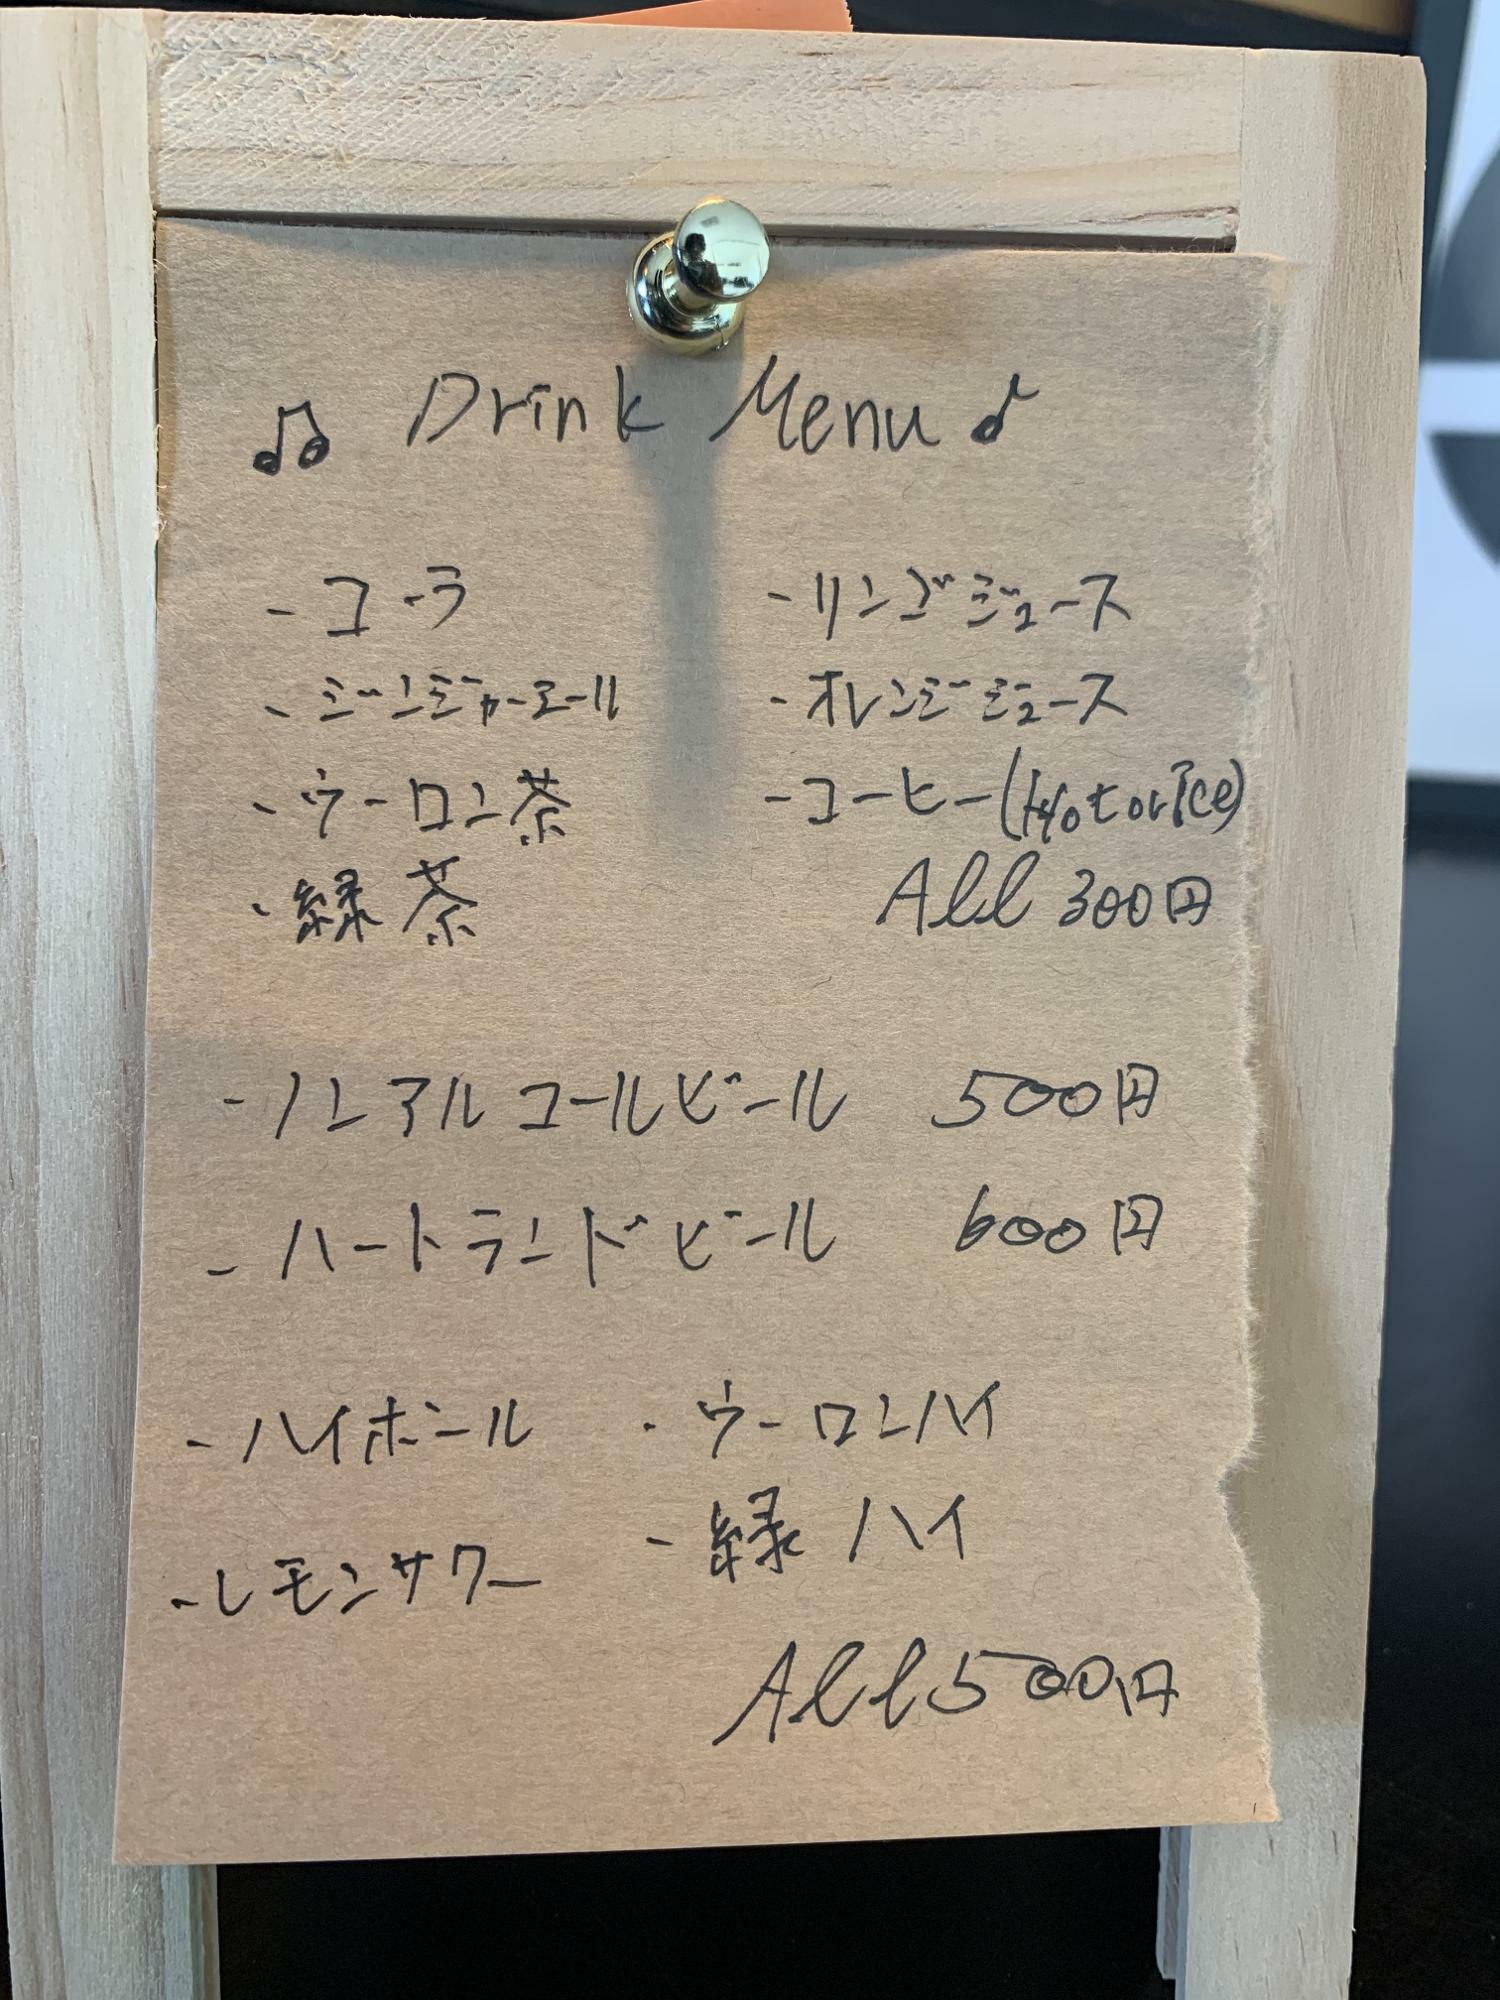 ♫ Drink Menu ♪
- コーラ
- ジンジャーエール
- ウーロン茶
・緑茶
- リンゴジュース
- オレンジジュース
- コーヒー (Hot or Ice)
All 300円
- ノンアルコールビール 500円
- ハートランドビール 600円
- ハイボール
- レモンサワー
・ウーロンハイ
- 緑ハイ
All 500円